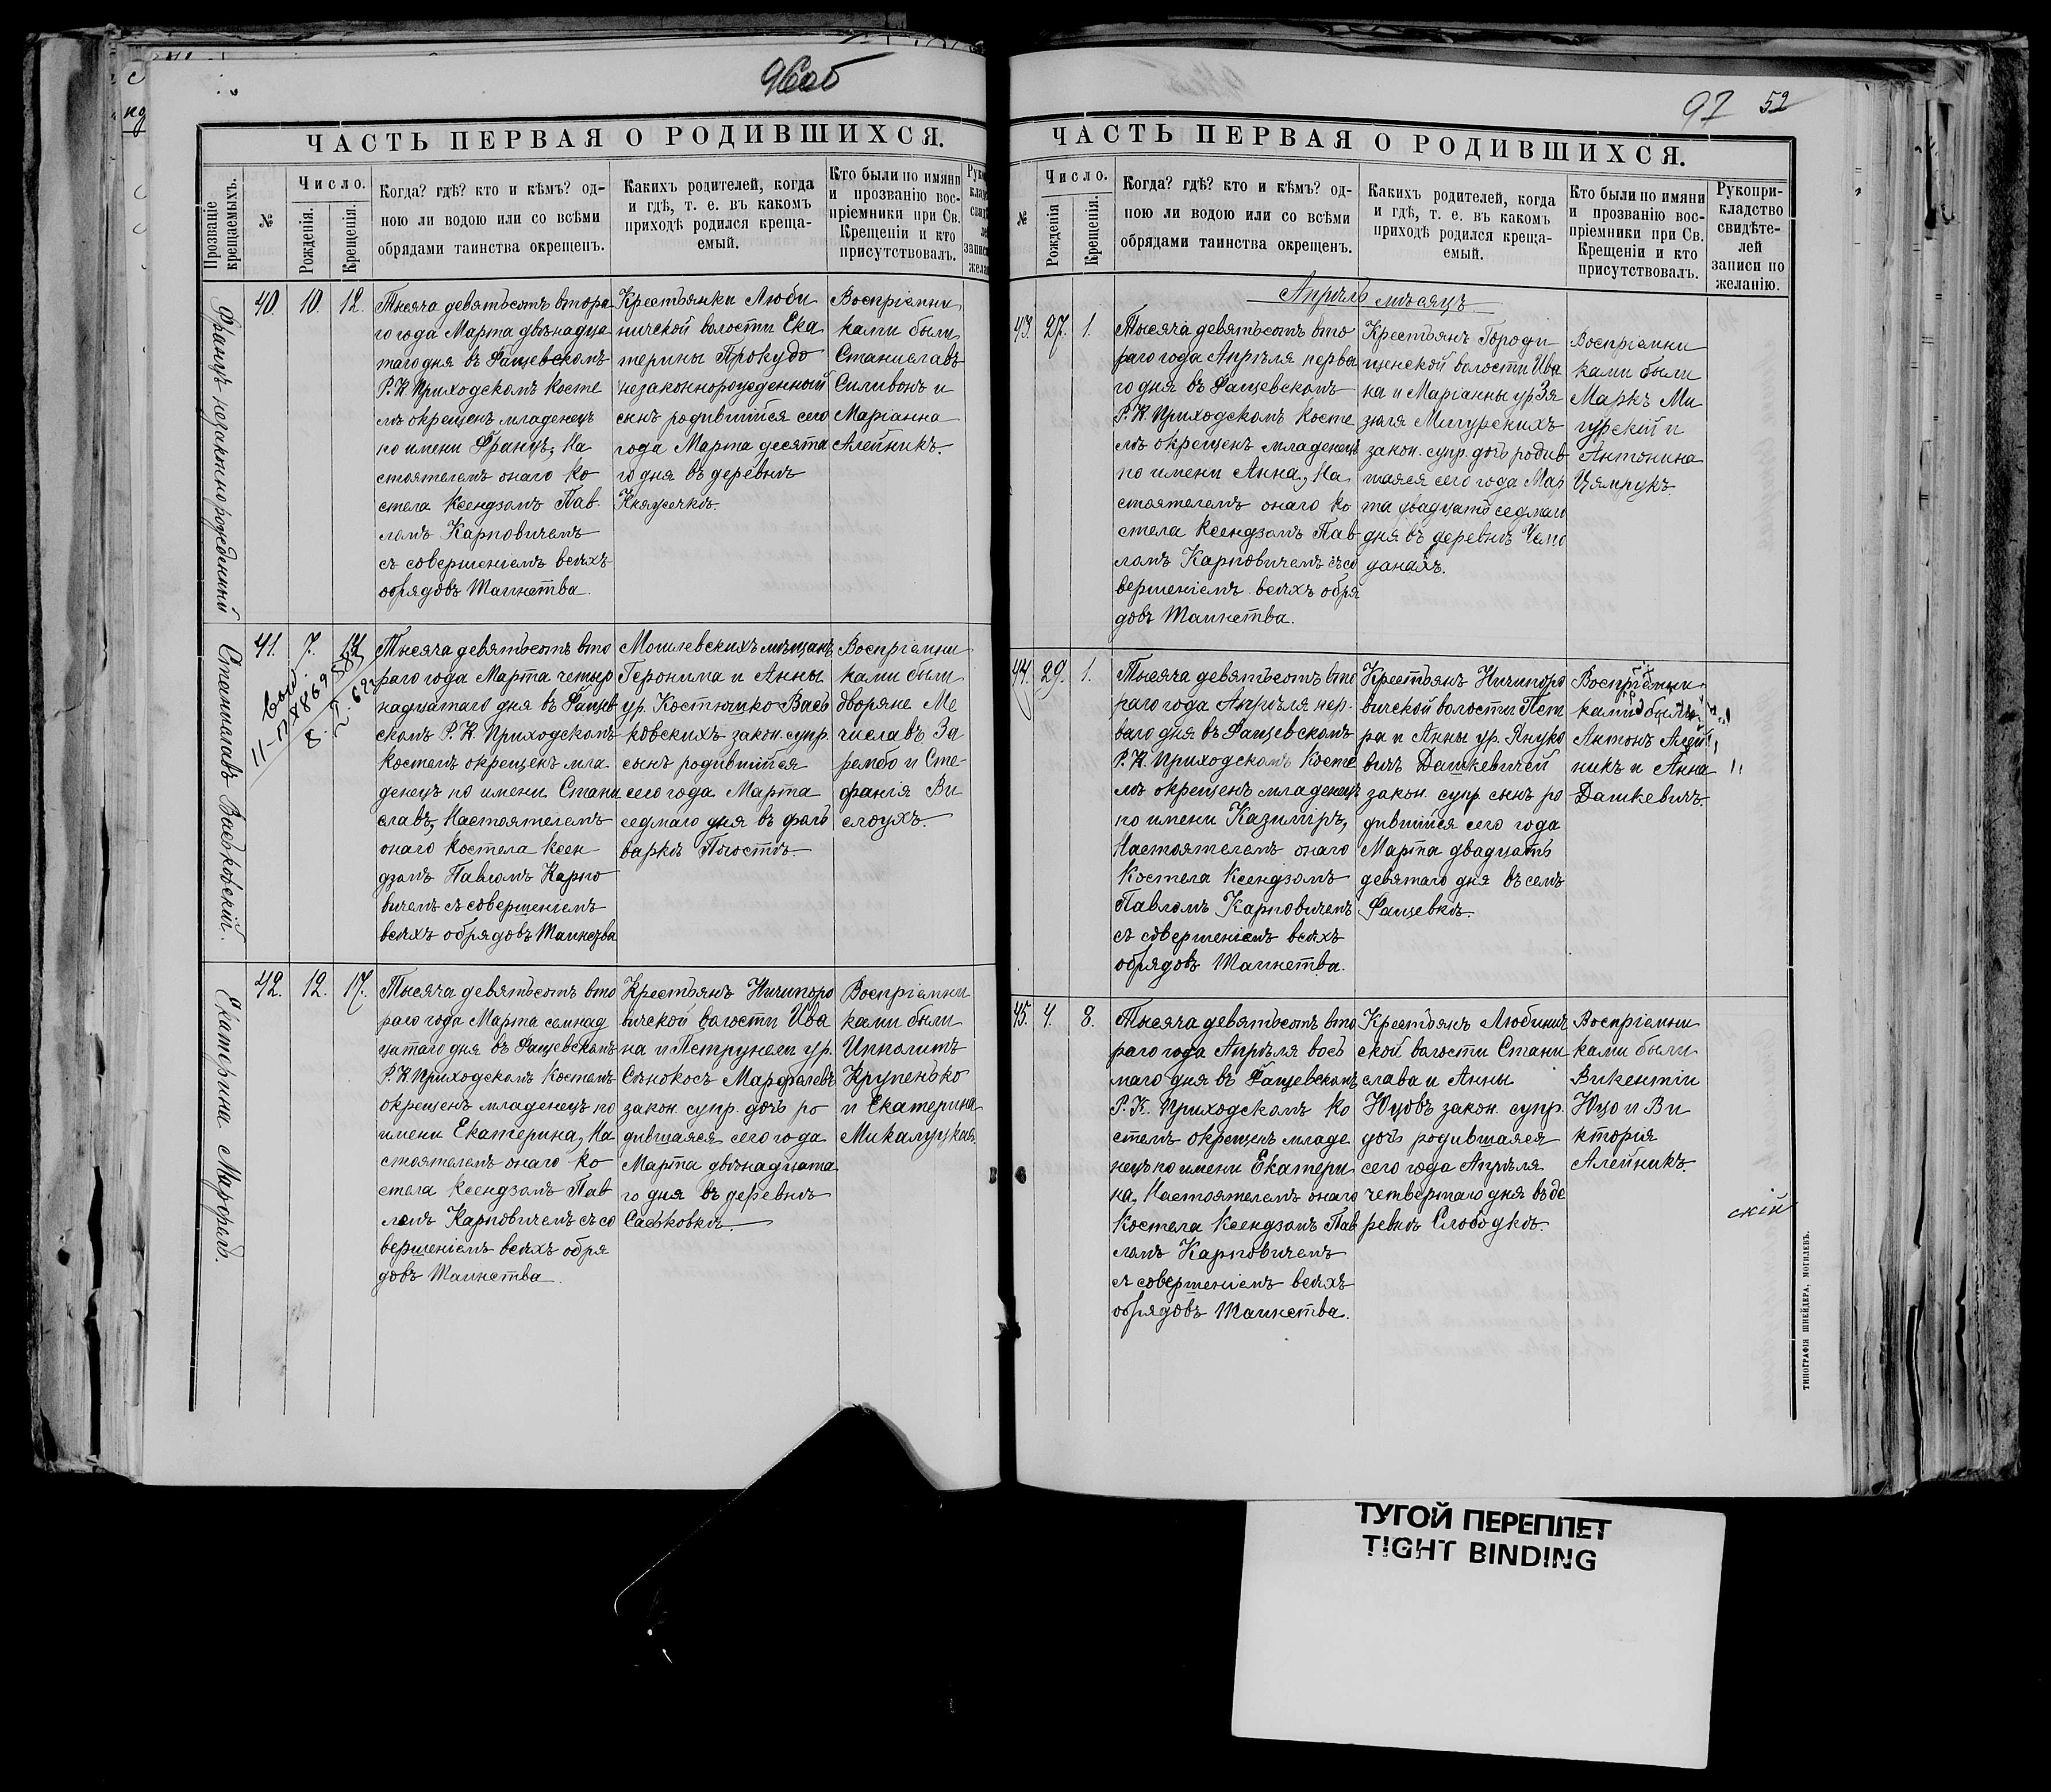 96 об
ЧАСТЬ ПЕРВАЯ О РОДИВШИХСЯ.
Прозваніе крещаемыхъ.
№
Число.
Рожденія.
Крещенія.
Когда? гдѣ? кто и кѣмъ? од-
ною ли водою или со всѣми
обрядами таинства окрещенъ.
Какихъ родителей, когда
и гдѣ, т. е. въ какомъ
приходѣ родился креща-
емый.
Кто были по имяни
и прозванію вос-
пріемники при Св.
Крещеніи и кто
присутствовалъ.
Францъ незаконнорожденный
40. 10. 12.
Тысяча девятьсотъ втора
го года Марта двѣнадца
таго дня въ Фащевскомъ
Р. К. Приходскомъ косте
лѣ окрещенъ младенецъ
по имени Францъ, На
стоятелемъ онаго ко
стела Ксендзомъ Пав
ломъ Карповичемъ
съ совершеніемъ всѣхъ
обрядовъ Таинства.
Крестьянки Люби
ничской волости Ека
терины Прокудо
незаконнорожденный
сынъ родившійся сего
года Марта десята
го дня въ деревнѣ
Княжечкѣ.
Воспріемни
ками были
Станиславъ
Силивонъ и
Маріанна
Алейникъ.
Станиславъ Васьковскій.
41. 7. 14.
Тысяча девятьсотъ вто
раго года Марта четыр
надцатаго дня въ Фащев
скомъ Р. К. Приходскомъ
костелѣ окрещенъ мла
денецъ по имени Стани
славъ, Настоятелемъ
онаго костела Ксен
дзомъ Павломъ Карпо
вичемъ съ совершеніемъ
всѣхъ обрядовъ Таинства
Могилевскихъ мѣщанъ
Геронима и Анны
ур. Костюшко Вась
ковскихъ закон. супр.
сынъ родившійся
сего года Марта
седмаго дня въ фоль
варкѣ Погостѣ.
Воспріемни
ками были
дворяне Ме
числавъ За
рембо и Сте
фанія Ви
слоухъ
Екатерина Марфель.
42. 12. 17.
Тысяча девятьсотъ вто
раго года Марта семнад
цатаго дня въ Фащевскомъ
Р. К. Приходскомъ костелѣ
окрещенъ младенецъ по
имени Екатерина, На
стоятелемъ онаго ко
стела Ксендзомъ Пав
ломъ Карповичемъ съ со
вершеніемъ всѣхъ обря
довъ Таинства.
Крестьянъ Ничипоро
вичской волости Ива
на и Петрунели ур.
Сѣнокосъ Марфелевъ
закон. супр. дочь ро
дившаяся сего года
Марта двѣнадцата
го дня въ деревнѣ
Воспріемни
ками были
Ипполитъ
Крупенько
и Екатерина
Микалуцкая
97 52
ЧАСТЬ ПЕРВАЯ О РОДИВШИХСЯ.
№
Число.
Рожденія
Крещенія.
Когда? гдѣ? кто и кѣмъ? од-
ною ли водою или со всѣми
обрядами таинства окрещенъ.
Какихъ родителей, когда
и гдѣ, т. е. въ какомъ
приходѣ родился креща-
емый.
Кто были по имяни
и прозванію вос-
пріемники при Св.
Крещеніи и кто
присутствовалъ.
Рукопри-
кладство
свидѣте-
лей
записи по
желанію.
Апрѣль мѣсяцъ
43. 27. 1.
Тысяча девятьсотъ вто
раго года Апрѣля перва
го дня въ Фащевскомъ
Р. К. Приходскомъ косте
лѣ окрещенъ младенецъ
по имени Анна, На
стоятелемъ онаго ко
стела Ксендзомъ Пав
ломъ Карповичемъ съ со
вершеніемъ всѣхъ обря
довъ Таинства.
Крестьянъ Городи
щенской волости Ива
на и Маріанны ур Зя
зюля Мигурскихъ
закон. супр. дочь родив
шаяся сего года Мар
та двадцать седмаго
дня въ деревнѣ Чемо
данахъ.
Воспріемни
ками были
Маркъ Ми
гурскій и
Антонина
Цямрукъ.
44. 29. 1.
Тысяча девятьсотъ вто
раго года Апрѣля пер
ваго дня въ Фащевскомъ
Р. К. Приходскомъ косте
лѣ окрещенъ младенецъ
по имени Казиміръ,
Настоятелемъ онаго
Костела Ксендзомъ
Павломъ Карповичемъ
съ совершеніемъ всѣхъ
обрядовъ Таинства.
Крестьянъ Ничипоро
вичской волости Пет
ра и Анны ур. Януко
вичъ Дашкевичей
закон. супр. сынъ ро
дившійся сего года
Марта двадцать
девятаго дня въ селѣ
Фащевкѣ.
Воспріемни
ками были
Антонъ Алей
никъ и Анна
Дашкевичъ
45. 4. 8.
Тысяча девятьсотъ вто
раго года Апрѣля вось
маго дня въ Фащевскомъ
Р. К. Приходскомъ ко
стелѣ окрещенъ младе
нецъ по имени Екатери
на, Настоятелемъ онаго
Костела Ксендзомъ Пав
ломъ Карповичемъ
съ совершеніемъ всѣхъ
обрядовъ Таинства.
Крестьянъ Любинич
ской волости Стани
слава и Анны
Юцовъ закон. супр.
дочь родившаяся
сего года Апрѣля
четвертаго дня въ де
ревнѣ Слободкѣ.
Воспріемни
ками были
Викентій
Юцо и Ви
кторія
Алейникъ
скій
ТИПОГРАФІЯ ШНЕЙДЕРА, МОГИЛЕВЪ.
ТУГОЙ ПЕРЕПЛЕТ
TIGHT BINDING